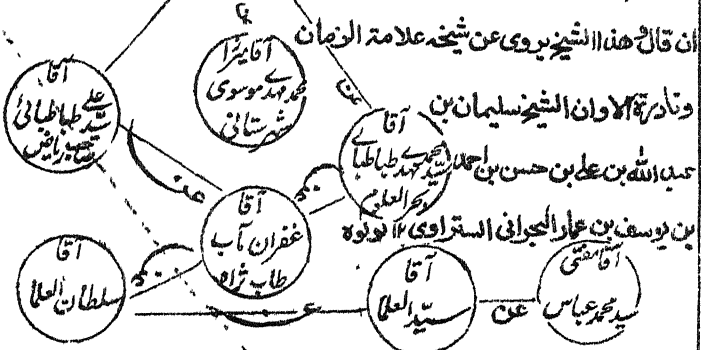 ان قال وهذا الشيخ يروى عن شيخه علامة الزمان
ونادرة الاوان الشيخ سليمان بن
عبد الله بن على بن حسن بن احمد
بن يوسف بن عمار البحرانى الستراوى ١٢ لولوه
آقا ميرزا
محمد مهدے موسوى
شهرستانى
عن
آقا
سيد
على طباطبائى
صاحب رياض
آقا
سيد محمد مهدے طباطبائے
بحر العلوم
عن
آقا
غفران مآب
طاب ثراه
آقا
سلطان العلما
عن
آقا
سيد العلما
عن
آقا مفتى
سيد محمد عباس